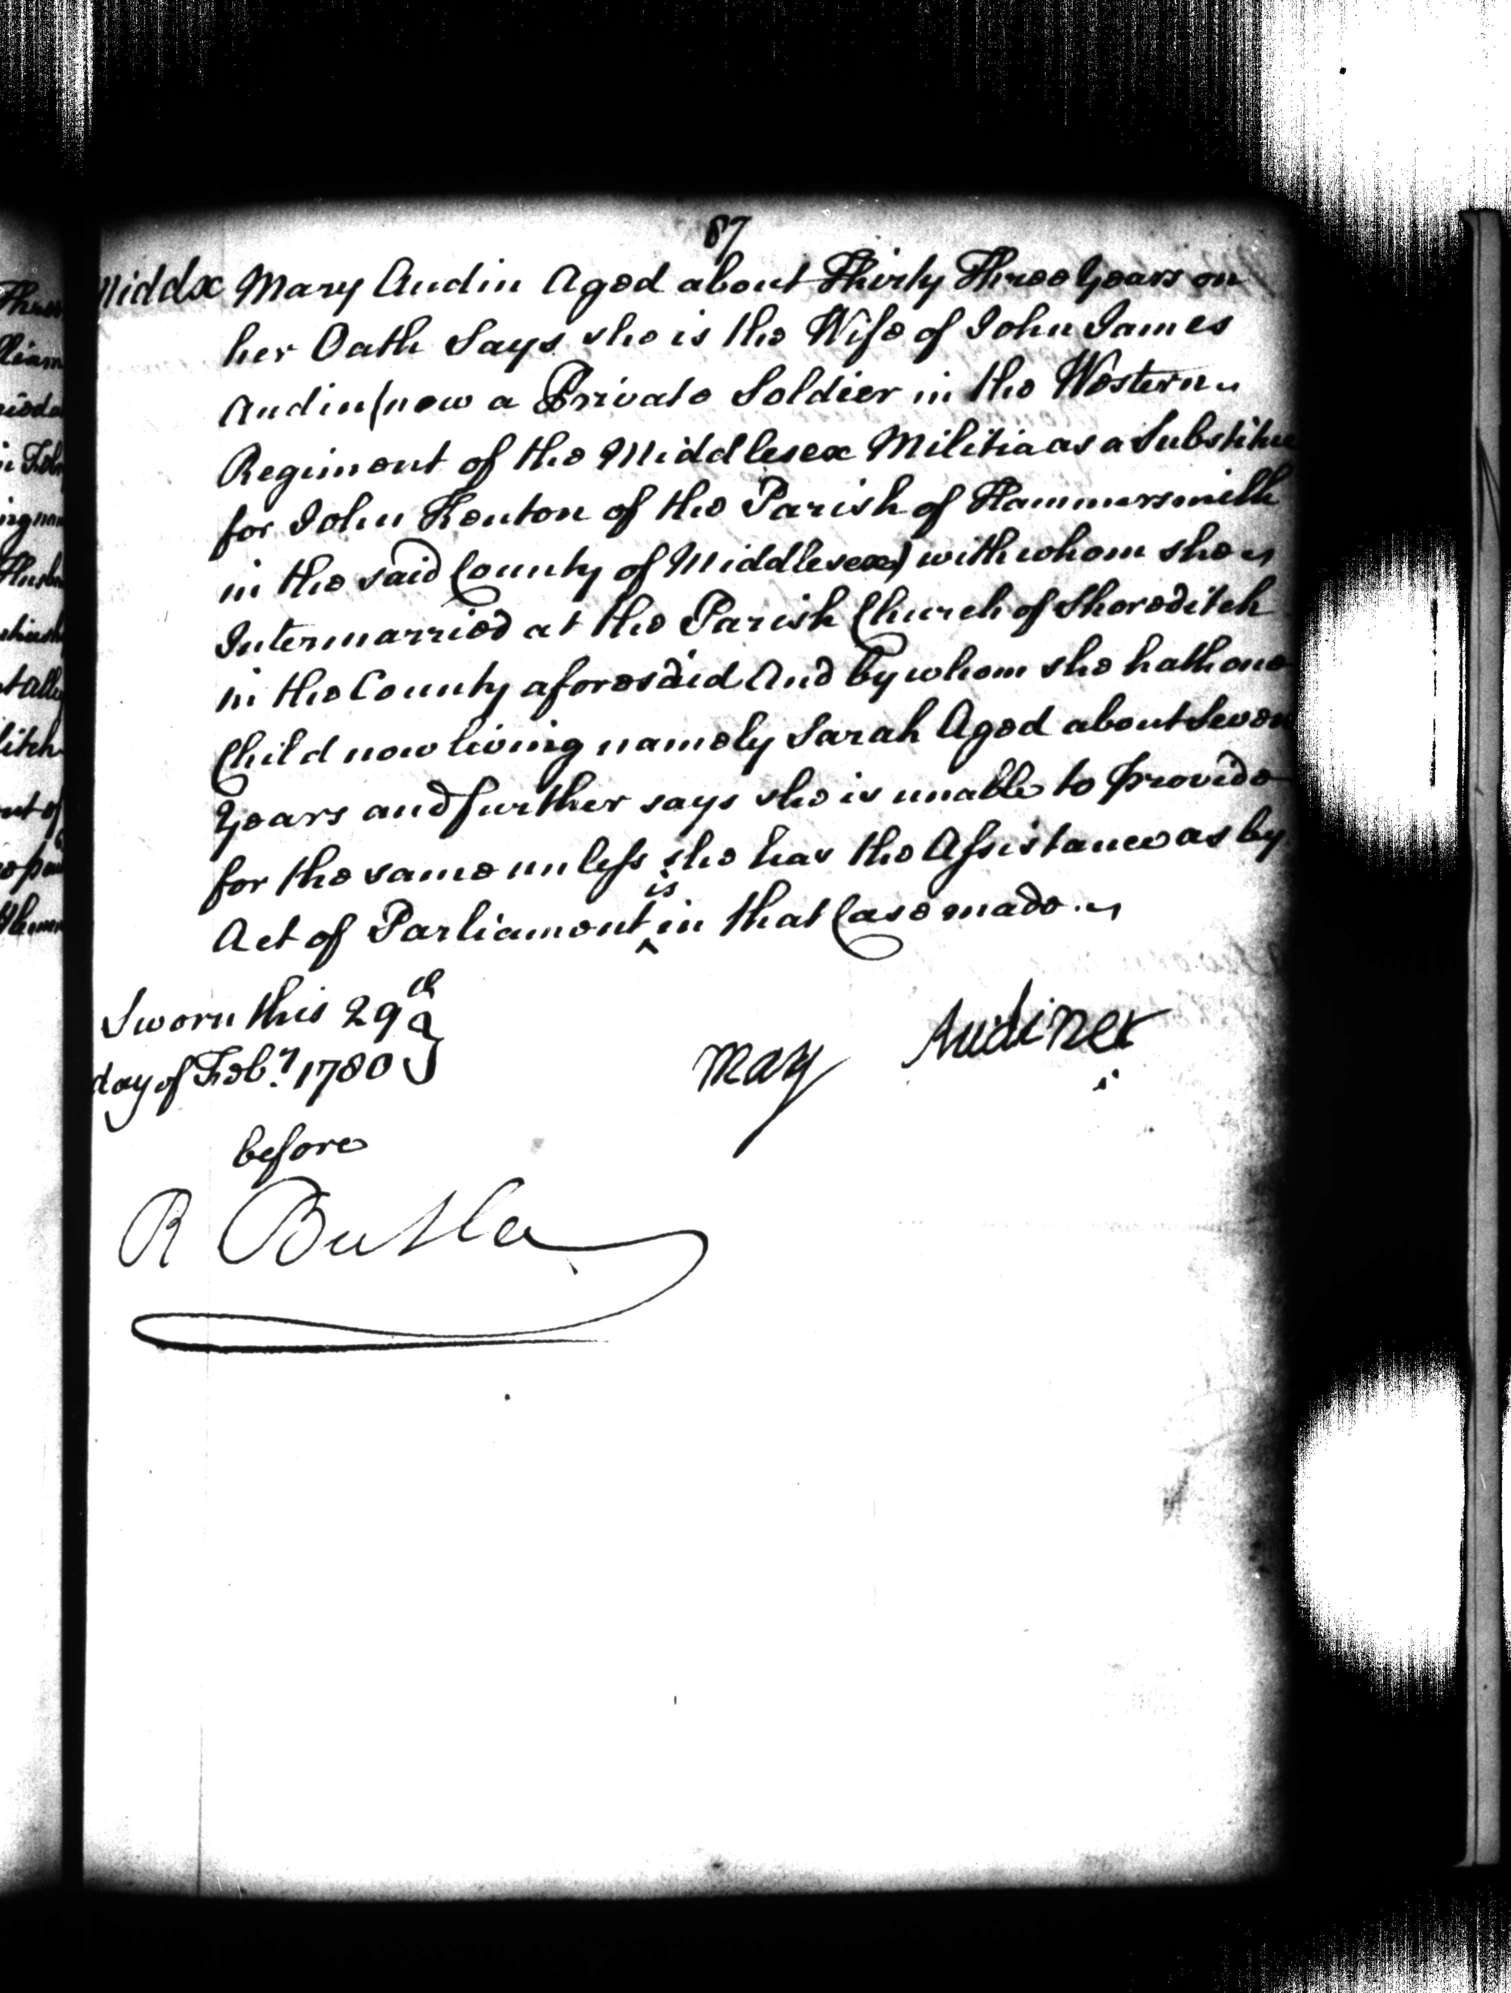 87
Middx Mary Audin Aged about Thirty Three Years on
her Oath Says she is the Wife of John James
Audin (now a Private Soldier in the Western
Regiment of the Middlesex Militia as a Substitute
for John Kenton of the Parish of Hammersmith
in the said County of Middlesex) with whom she
Intermarried at the Parish Church of Shoreditch
in the County aforesaid And by whom she hath one
Child now living namely Sarah Aged about Seven
Years and further says she is unable to provide
for the same unless she has the Assistance as by
Act of Parliament ^is in that Case made.
Sworn this 29th
day of Feb.y 1780
before
may Audiner
R Butler